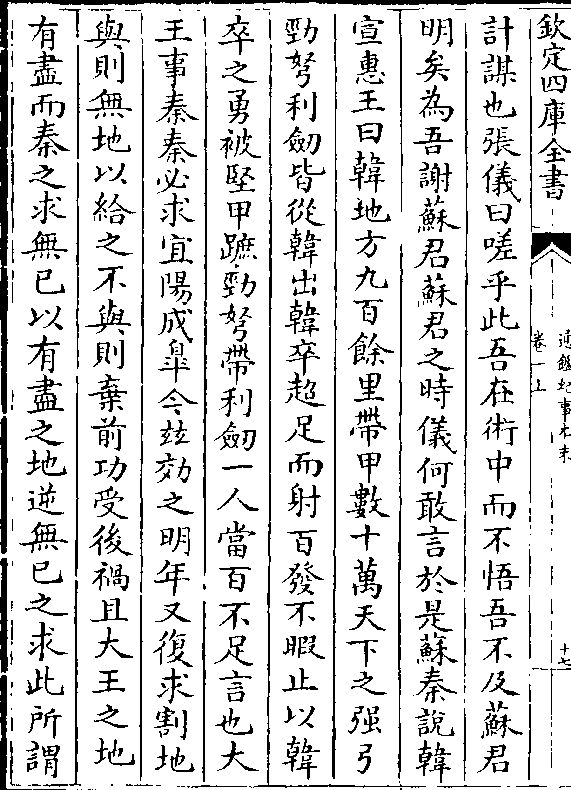 欽定四庫全書
通鑑紀事本末
卷一上
十七
計謀也張儀曰嗟乎此吾在術中而不悟吾不及蘇君
明矣為吾謝蘇君蘇君之時儀何敢言於是蘇秦說韓
宣惠王曰韓地方九百餘里帶甲數十萬天下之强弓
勁弩利劒皆從韓出韓卒超足而射百發不暇止以韓
卒之勇被堅甲蹠勁弩帶利劒一人當百不足言也大
王事秦秦必求宜陽成臯今兹効之明年又復求割地
與則無地以給之不與則棄前功受後禍且大王之地
有盡而秦之求無已以有盡之地逆無已之求此所謂